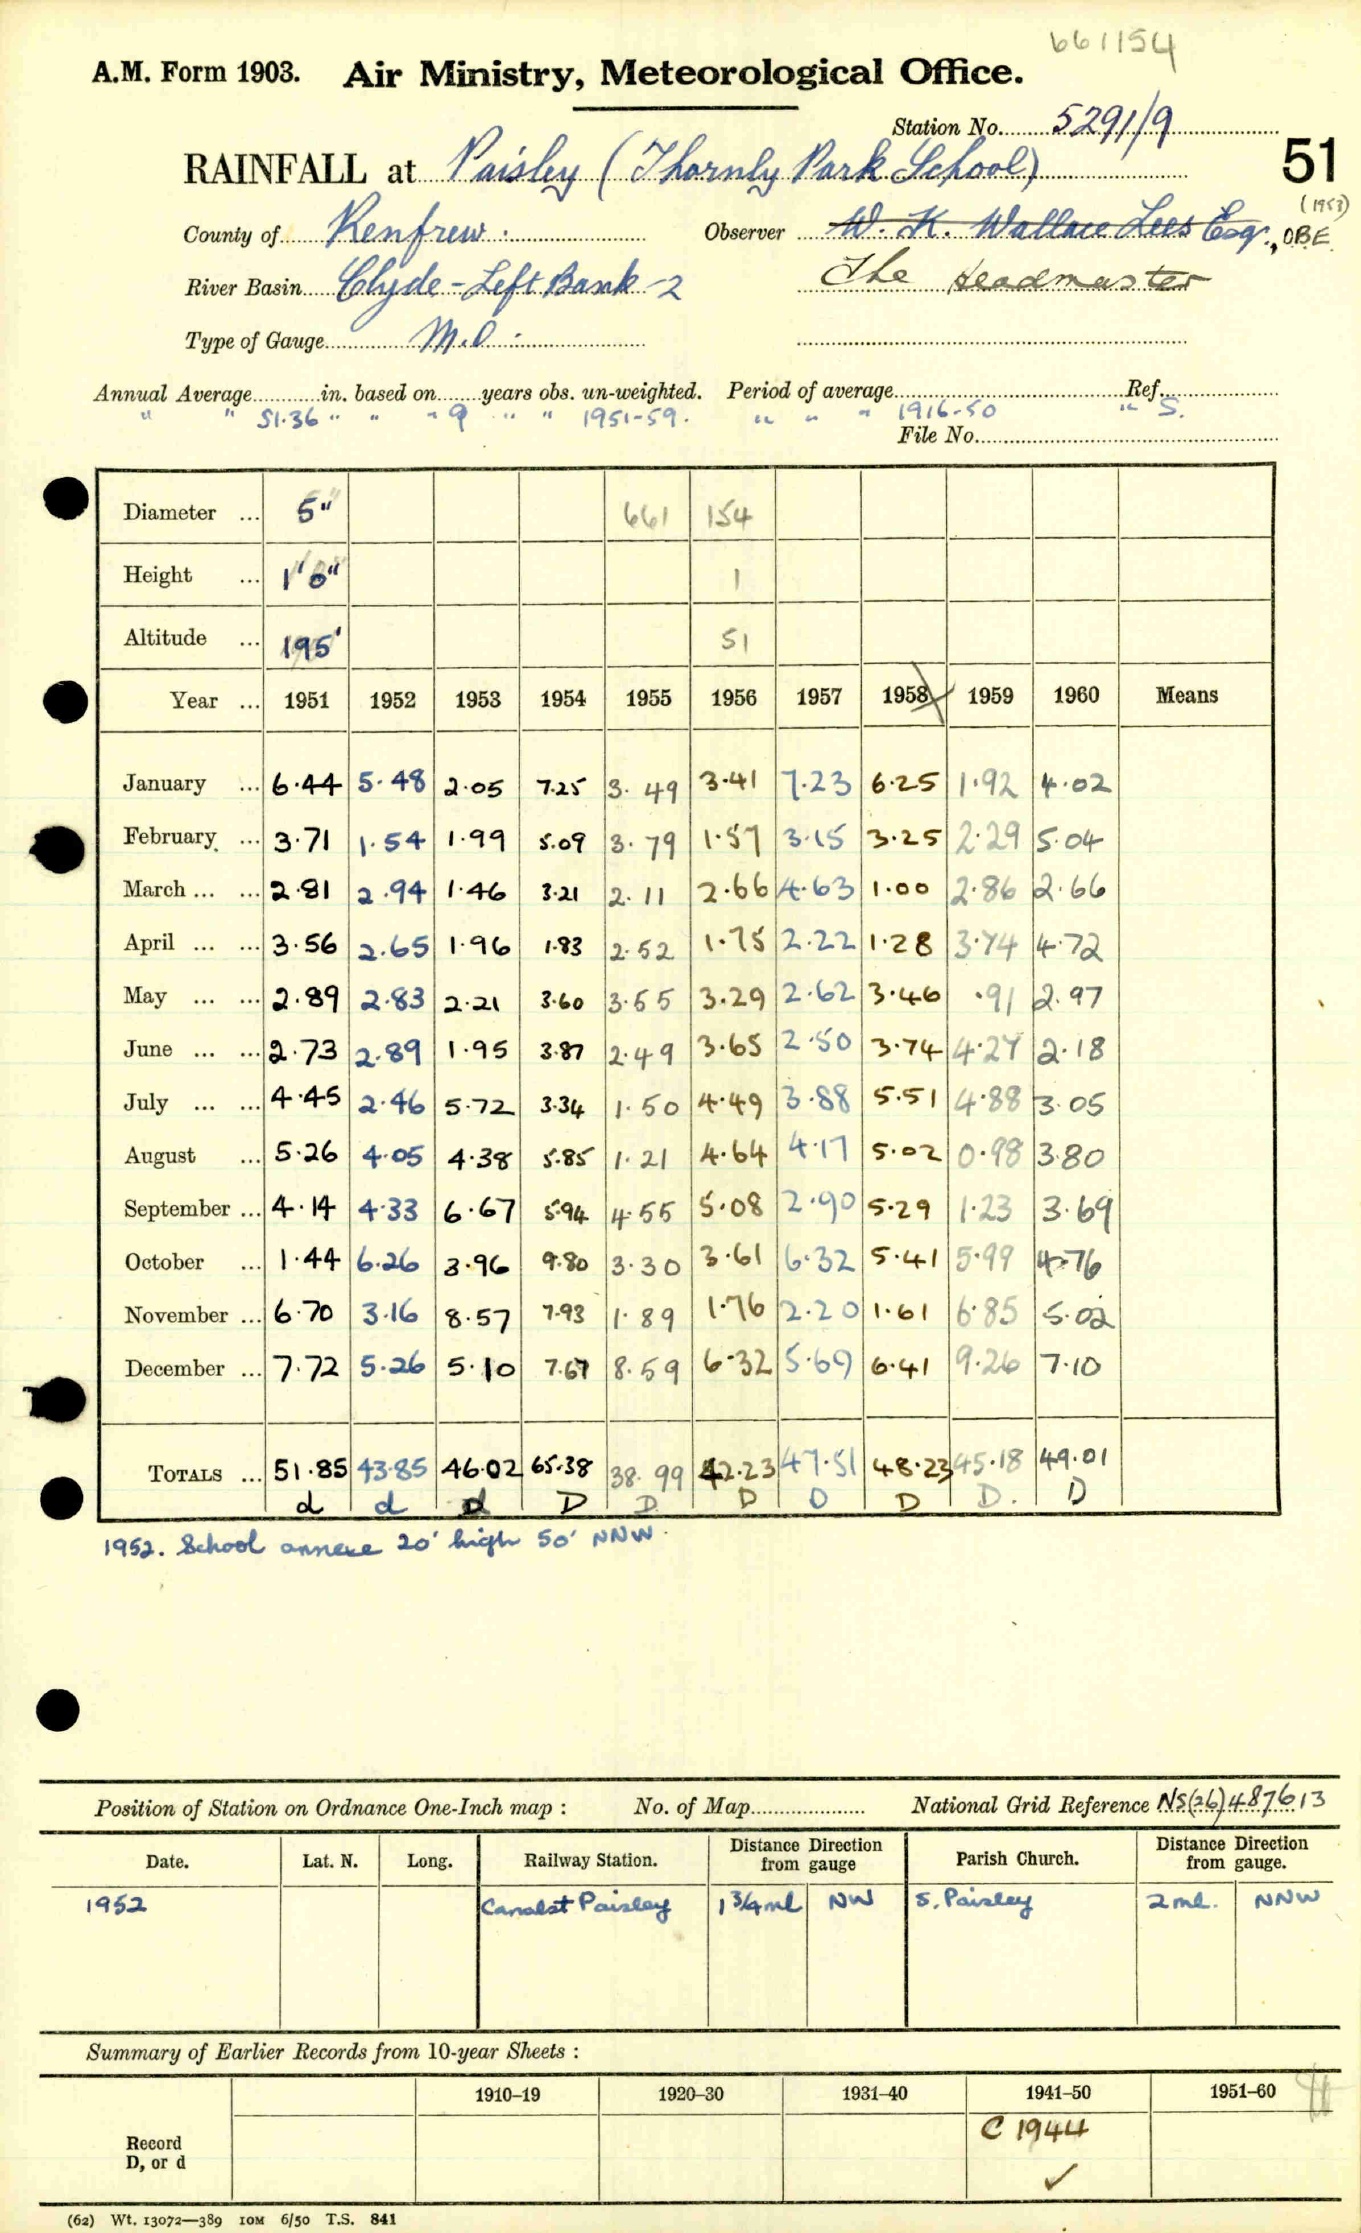 661154
A.M. Form 1903. Air Ministry, Meteorological Office.
Station No. 5291/9
RAINFALL at Paisley (Thornly Park School) 51
(1953)
County of Renfrew. Observer W. K. Wallace Lees Esq., OBE
River Basin Clyde - Left Bank - 2 The Headmaster
Type of Gauge M.O.
Annual Average in. based on years obs. un-weighted. Period of average Ref.
" " 51.36 " " " 9 " " 1951-59. " " " 1916-50 " S.
File No.
Diameter ... 5" 661 154
Height ... 1' 0" 1
Altitude ... 195' 51
Year ... 1951 1952 1953 1954 1955 1956 1957 1958 1959 1960 Means
January ... 6.44 5.48 2.05 7.25 3.49 3.41 7.23 6.25 1.92 4.02
February ... 3.71 1.54 1.99 5.09 3.79 1.57 3.15 3.25 2.29 5.04
March ... ... 2.81 2.94 1.46 3.21 2.11 2.66 4.63 1.00 2.86 2.66
April ... ... 3.56 2.65 1.96 1.83 2.52 1.75 2.22 1.28 3.74 4.72
May ... ... 2.89 2.83 2.21 3.60 3.55 3.29 2.62 3.46 .91 2.97
June ... ... 2.73 2.89 1.95 3.87 2.49 3.65 2.50 3.74 4.27 2.18
July ... ... 4.45 2.46 5.72 3.34 1.50 4.49 3.88 5.51 4.88 3.05
August ... 5.26 4.05 4.38 5.85 1.21 4.64 4.17 5.02 0.98 3.80
September ... 4.14 4.33 6.67 5.94 4.55 5.08 2.90 5.29 1.23 3.69
October ... 1.44 6.26 3.96 9.80 3.30 3.61 6.32 5.41 5.99 4.76
November ... 6.70 3.16 8.57 7.93 1.89 1.76 2.20 1.61 6.85 5.02
December ... 7.72 5.26 5.10 7.67 8.59 6.32 5.69 6.41 9.26 7.10
TOTALS ... 51.85 43.85 46.02 65.38 38.99 42.23 47.51 48.23 45.18 49.01
d d d D D D D D D. D
1952. School annexe 20' high 50' NNW.
Position of Station on Ordnance One-Inch map : No. of Map National Grid Reference NS(26)487613
Date. Lat. N. Long. Railway Station. Distance Direction from gauge Parish Church. Distance Direction from gauge.
1952 Canal St Paisley 1 3/4 ml NW S. Paisley 2 ml. NNW
Summary of Earlier Records from 10-year Sheets :
1910–19 1920–30 1931–40 1941–50 1951–60
Record C 1944
D, or d ✓
(62) Wt. 13072—389 10M 6/50 T.S. 841